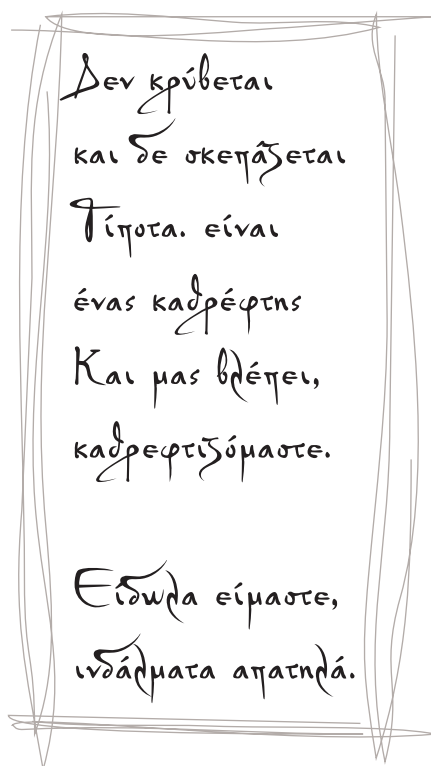 Δεν κρύβεται
και δε σκεπᾶζεται
Τίποτα. είναι
ένας καθρέφτης
Και μας βλέπει,
καθρεφτιζόμαστε.
Είδωλα είμαστε,
ινδάλματα απατηλά.